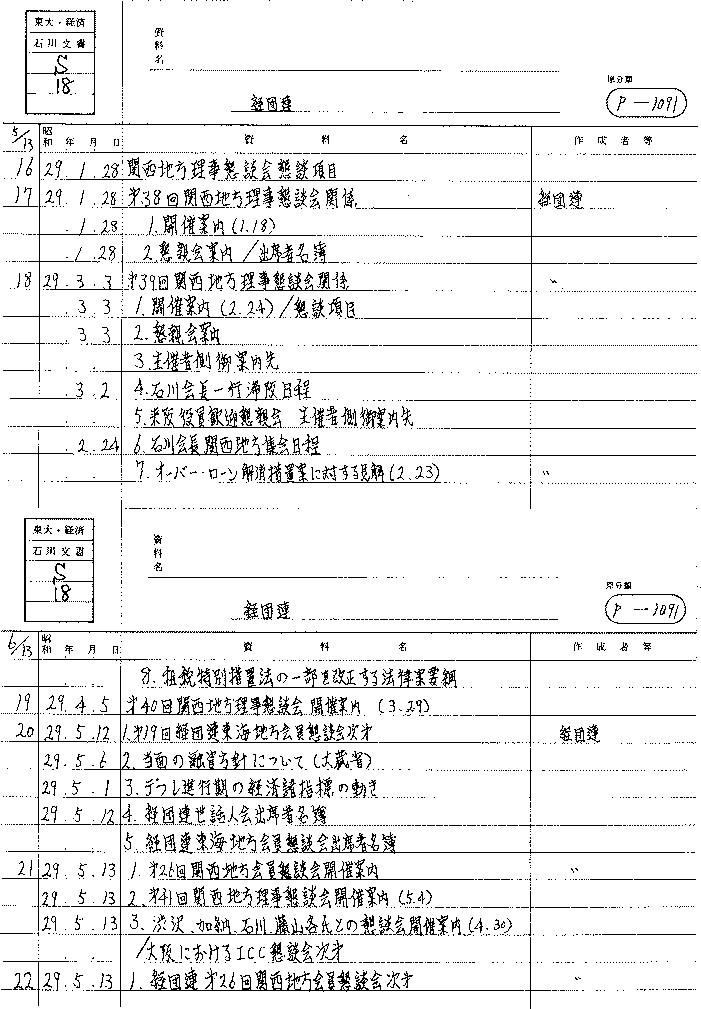 東大・経済
石川文書
S
18
資料名
経団連
原分類
P-1091
5/13 昭和 年 月 日 資料名 作成者等
16 29.1.28 関西地方理事懇談会懇談項目
17 29.1.28 第38回関西地方理事懇談会関係 経団連
.1.28 1.開催案内(1.18)
.1.28 2.懇親会案内/出席者名簿
18 29.3.3 第39回関西地方理事懇談会関係 〃
.3.3 1.開催案内(2.24)/懇談項目
.3.3 2.懇親会案内
3.主催者側御案内先
.3.2 4.石川会長一行滞阪日程
5.来阪役員歓迎懇親会 主催者側御案内先
.2.24 6.石川会長関西地方集会日程
7.オーバー・ローン解消措置案に対する見解(2.23) 〃
東大・経済
石川文書
S
18
資料名
経団連
原分類
P-1091
6/13 昭和 年 月 日 資料名 作成者等
8.租税特別措置法の一部を改正する法律案要綱
19 29.4.5 第40回関西地方理事懇談会開催案内 (3.29)
20 29.5.12 1.第19回経団連東海地方会員懇談会次第 経団連
29.5.6 2.当面の融資方針について(大蔵省)
29.5.1 3.デフレ進行期の経済諸指標の動き
29.5.12 4.経団連世話人会出席者名簿
5.経団連東海地方会員懇談会出席者名簿
21 29.5.13 1.第26回関西地方会員懇談会開催案内 〃
29.5.13 2.第41回関西地方理事懇談会開催案内(5.4)
29.5.13 3.渋沢、加納、石川、藤山各氏との懇談会開催案内(4.30)
/大阪におけるICC懇談会次第
22 29.5.13 1.経団連第26回関西地方会員懇談会次第 〃